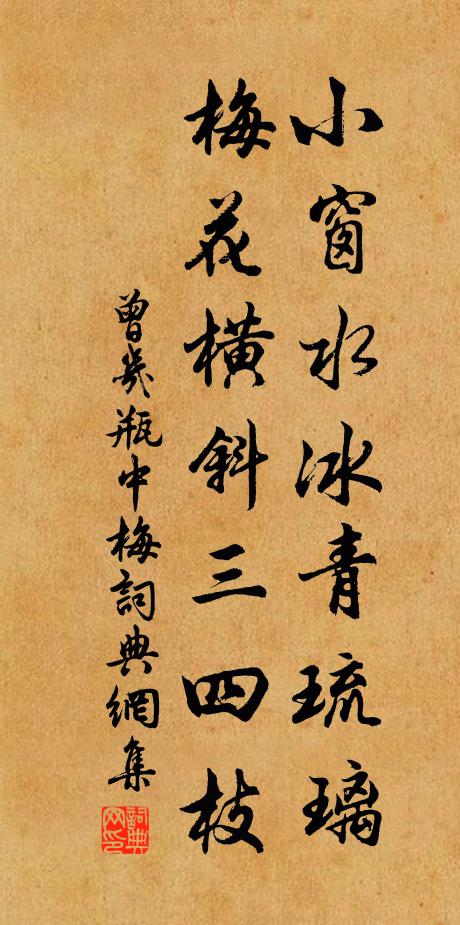 小窗水冰青琉璃
梅花橫斜三四枝
曾幾瓶中梅詞典網集
詞典網印